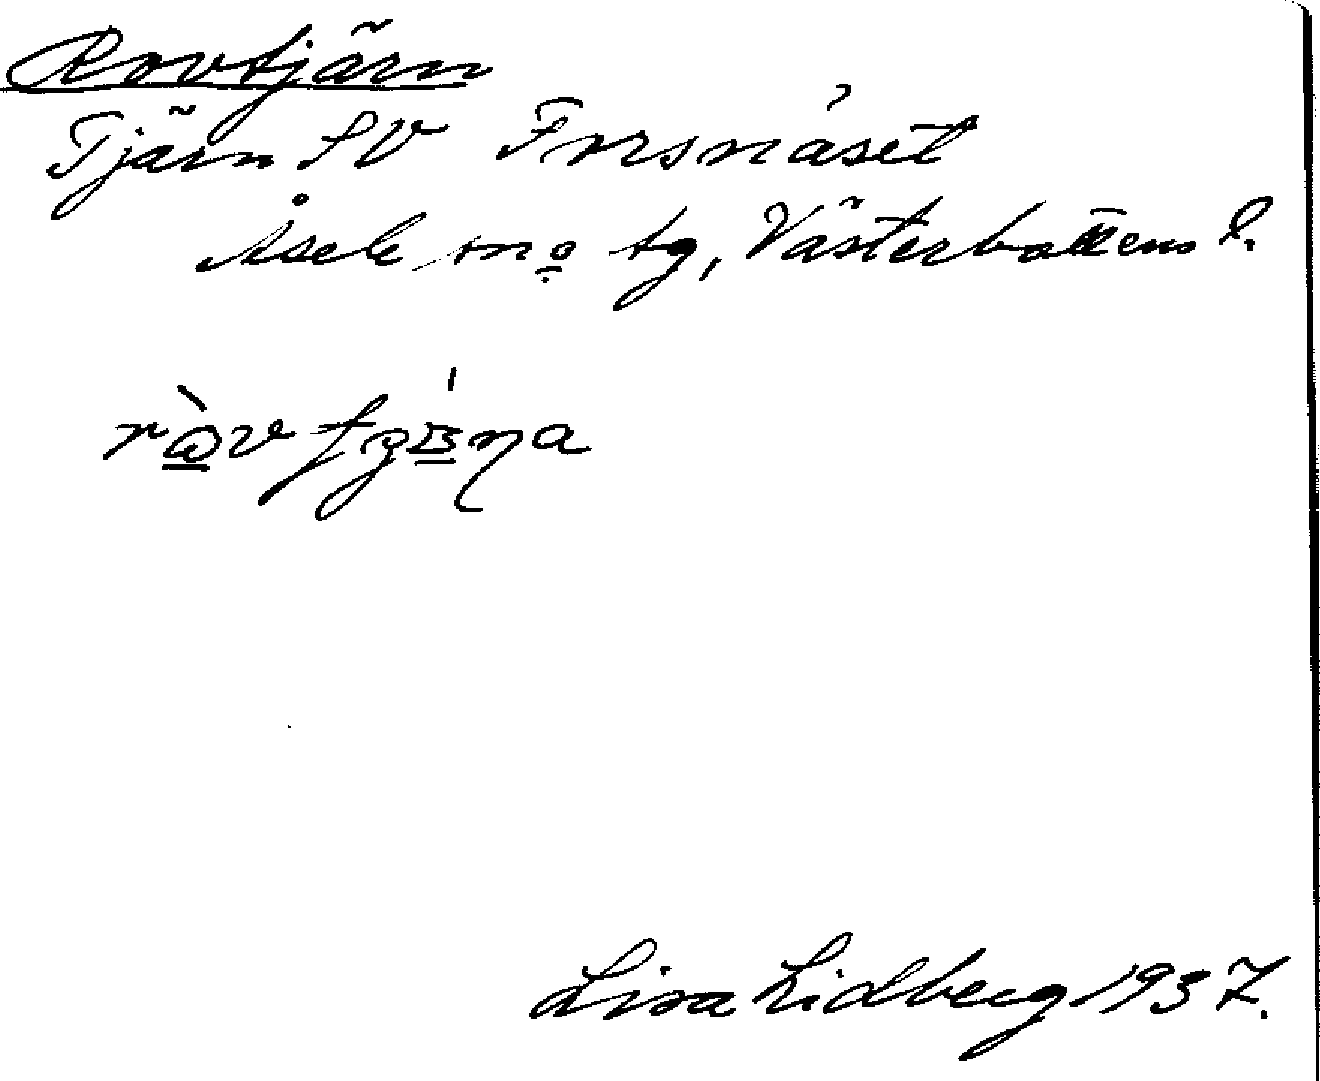 Rovtjärn
Tjärn SV Forsnäset
Åsele sn o tg, Västerbottens l.
Lisa Lidberg 1937.